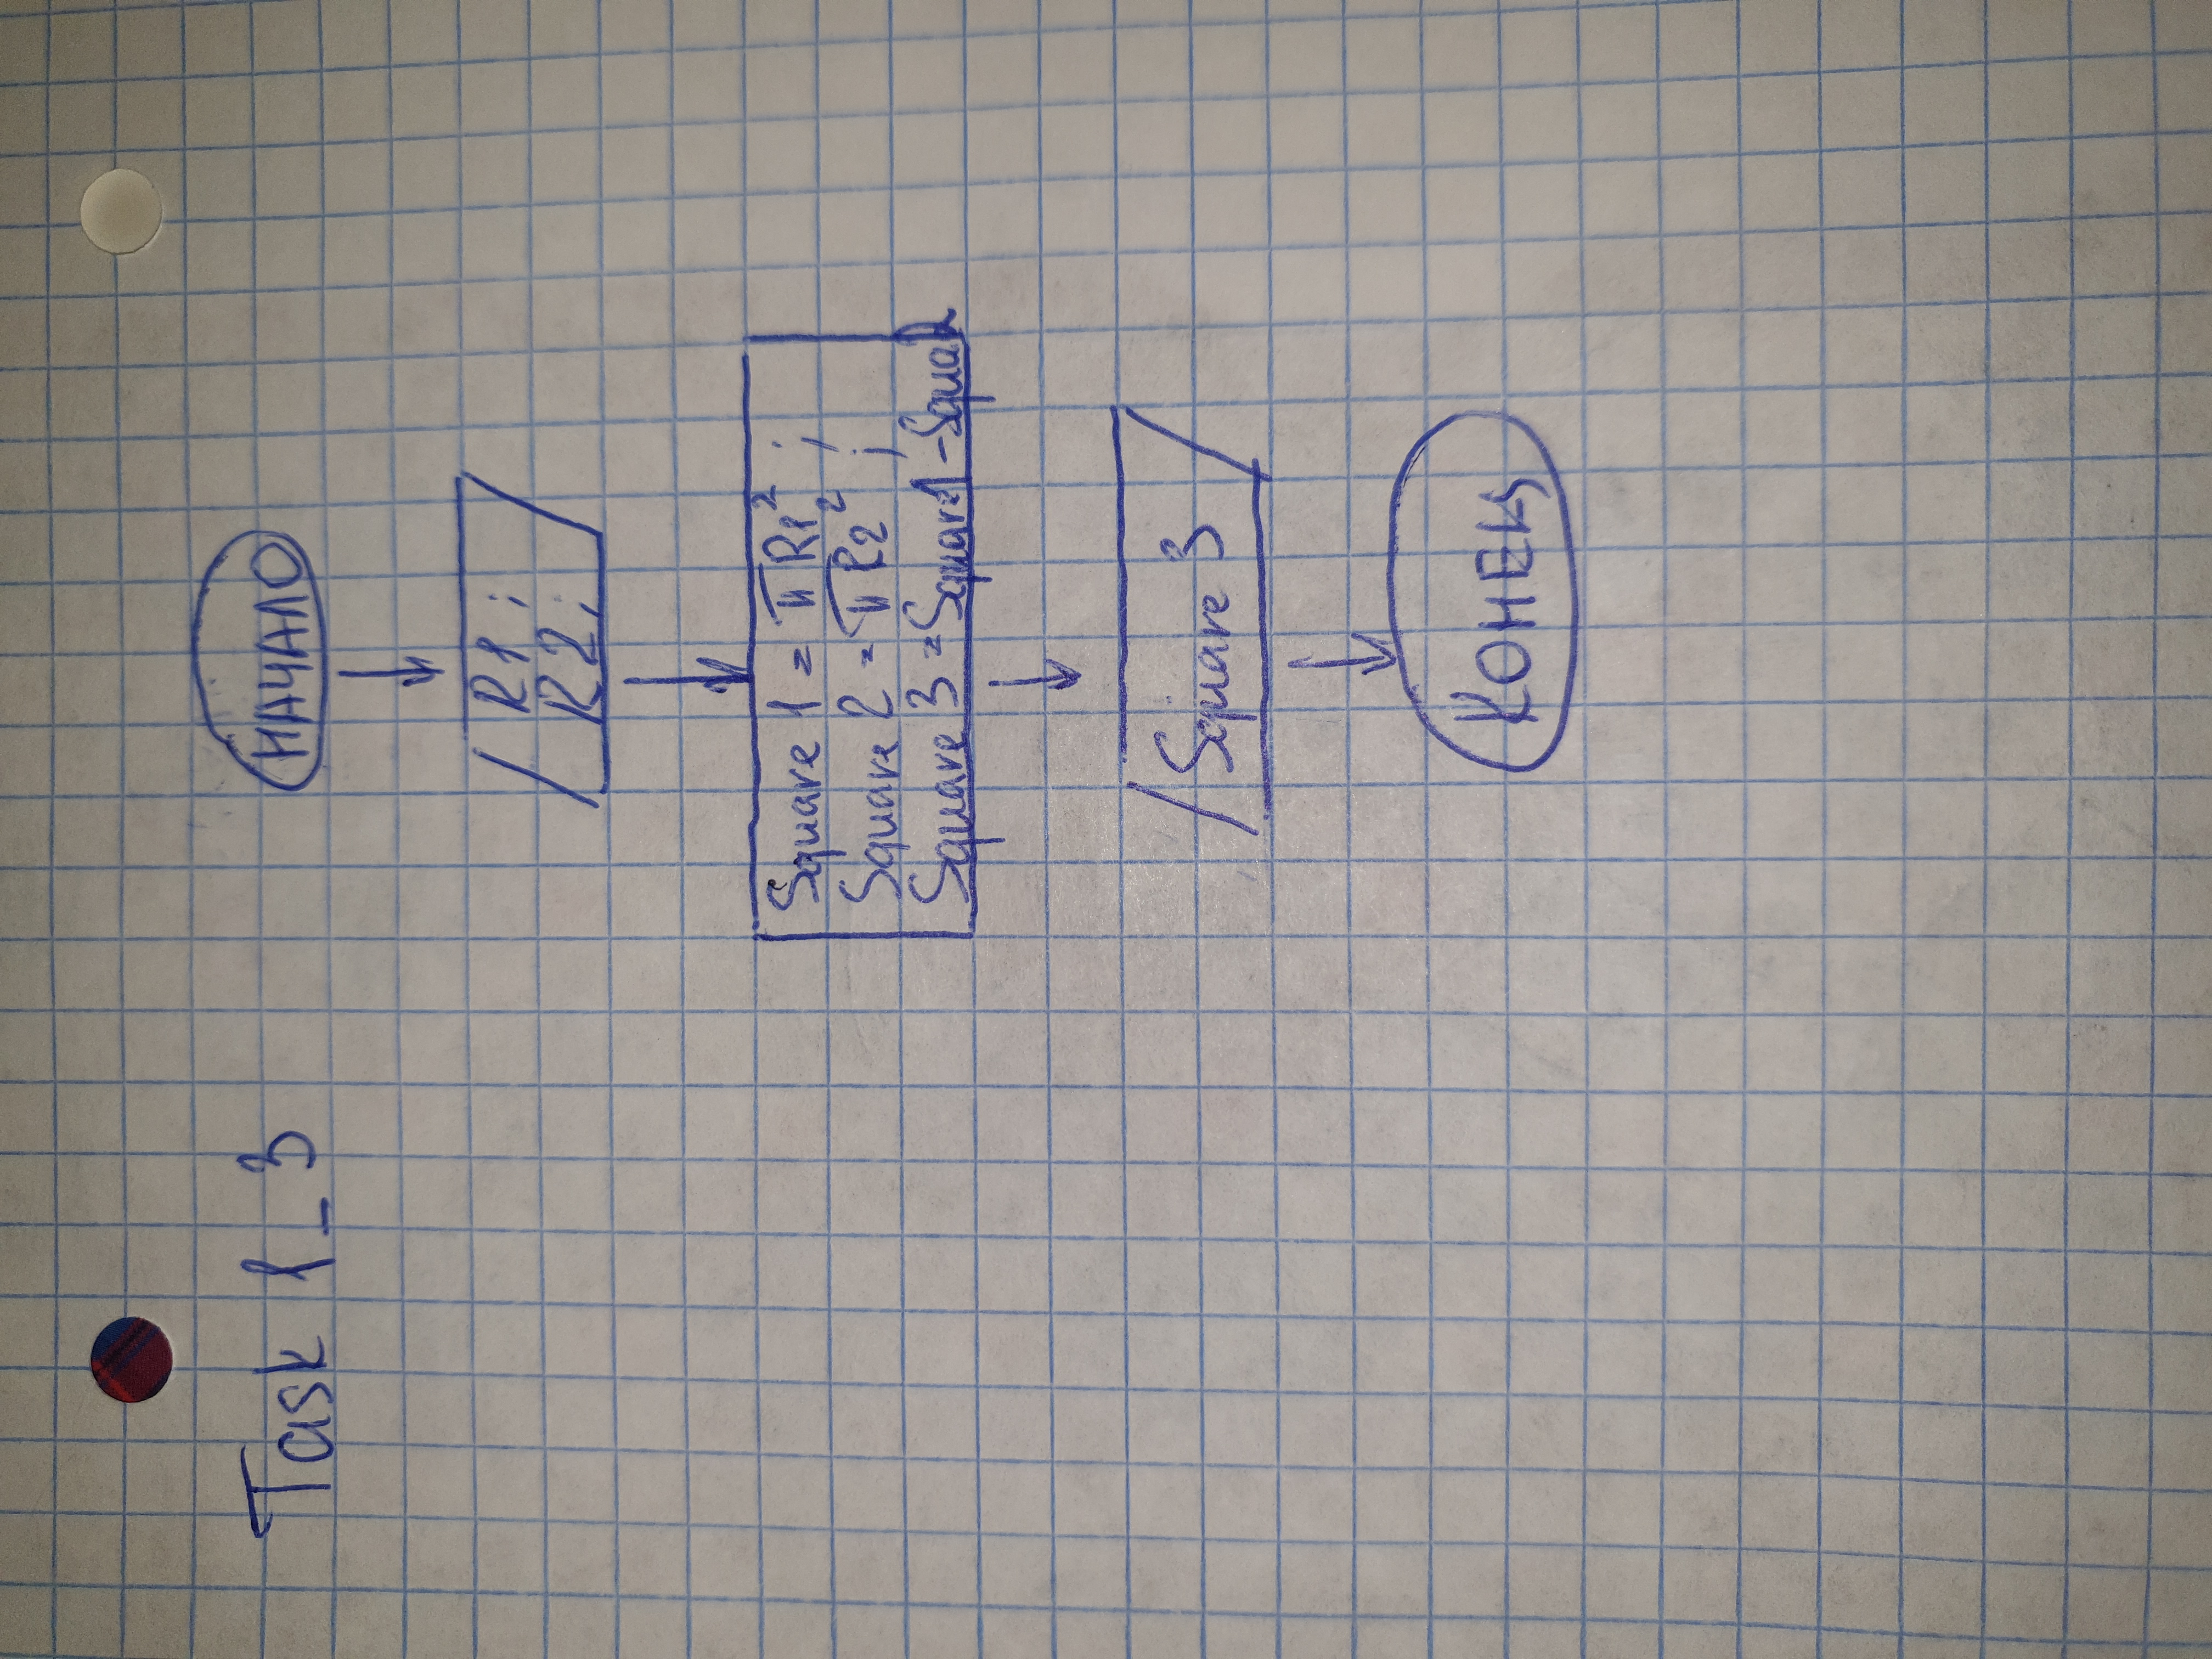 Task 1_3
НАЧАЛО
R1;
R2;
Square 1 = πR1² ;
Square 2 = πR2² ;
Square 3 = Square1 - Squa2
Square 3
КОНЕЦ